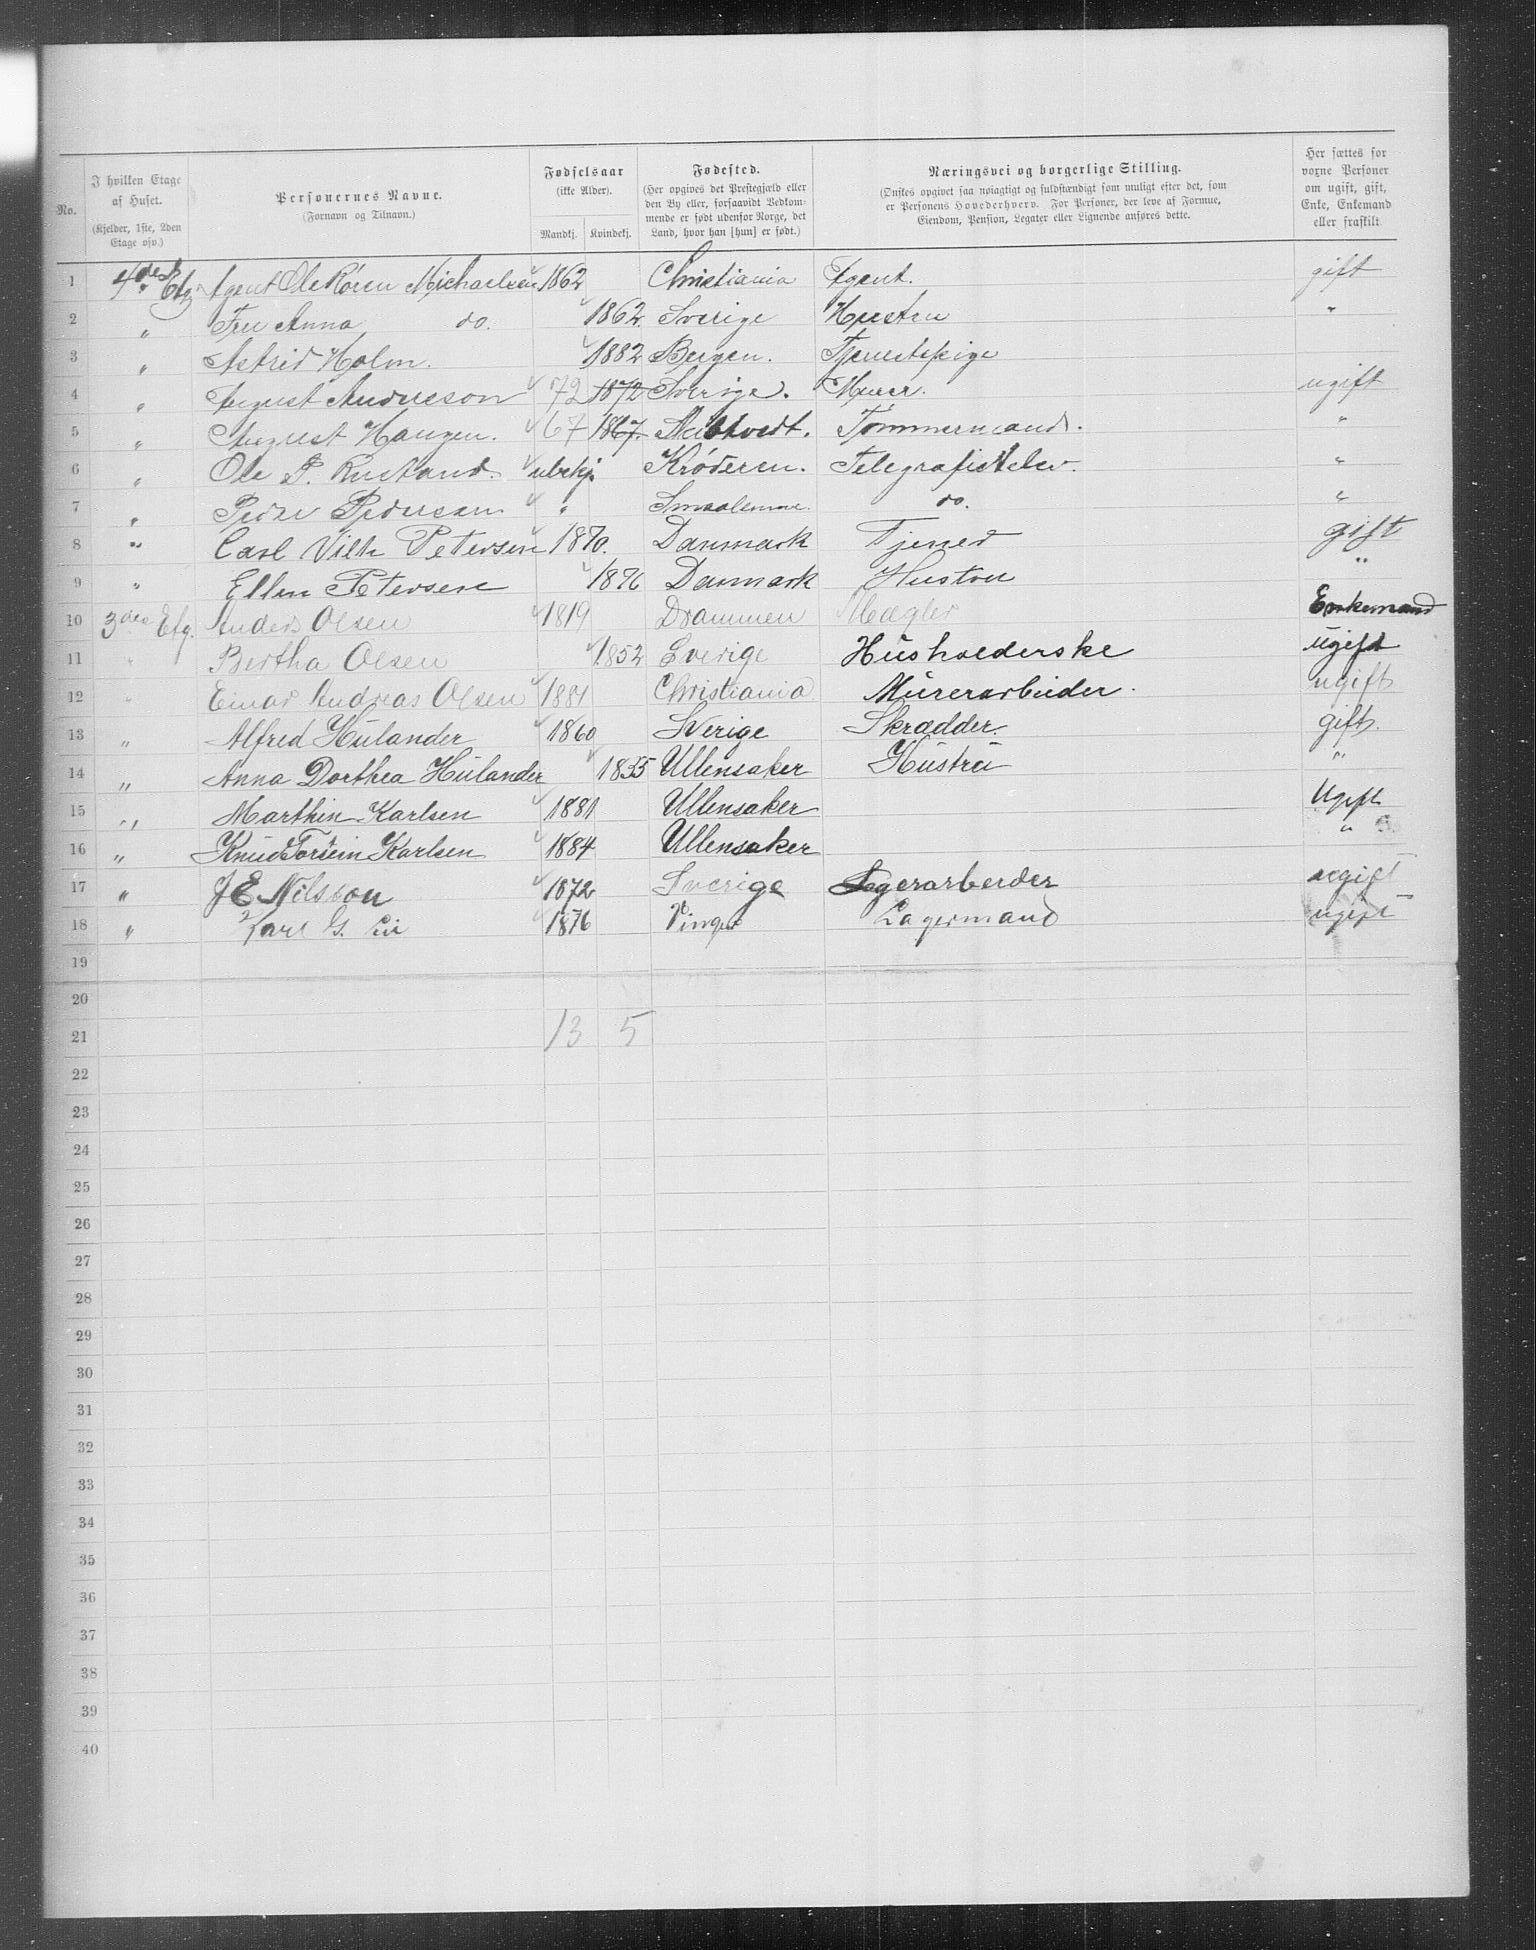 No.
I hvilken Etage af Huset. (Kjelder, 1ste, 2den Etage osv.)
Personernes Navne. (Fornavn og Tilnavn.)
Fødselsaar (ikke Alder). Mandkj. Kvindekj.
Fødested. (Her opgives det Prestegjæld eller den By eller, forsaavidt Vedkommende er født udenfor Norge, det Land, hvor han [hun] er født.)
Næringsvei og borgerlige Stilling. (Ønskes opgivet saa nøiagtigt og fuldstændigt som muligt efter det, som er Personens Hovederhverv. For Personer, der leve af Formue, Eiendom, Pension, Legater eller Lignende anføres dette.
Her sættes for voxne Personer om ugift, gift, Enke, Enkemand eller fraskilt
1 4de Etg Agent Ole Køren Michaelsen 1862 Christiania Agent. gift
2 " Fru Anna do. 1862 Sverige Hustru "
3 " Astrid Holm. 1882 Bergen. Tjenestepige
4 " August Andresson 72 1872 Sverige. Murer. ugift
5 " August Haugen. 67 1867. Tømmermand. "
6 " Ole P. Rustand. ubekj. Krøderen. Telegrafistelev. "
7 " Peder Pedersen " Smaalenene. do. "
8 " Carl Vilh Petersen 1870. Danmark Tjener gift
9 " Ellen Petersen 1876 Danmark Hustru "
10 3die Etg. Anders Olsen 1819 Drammen Mægler Enkemand
11 " Bertha Olsen 1852 Sverige Husholderske ugift
12 " Einar Andreas Olsen 1881 Christiania Murerarbeider. ugift
13 " Alfred Hulander 1860 Sverige Skrædder. gift.
14 " Anna Dorthea Hulander 1835 Ullensaker Hustru "
15 " Marthin Karlsen 1881 Ullensaker Ugift
16 " Knud Torsein Karlsen 1884 Ullensaker "
17 " J E Nilsson 1872 Sverige Lagerarbeider ugift
18 " Karl G. Lie 1876 Vinger Lagermand ugift
19
20
21 13 5
22
23
24
25
26
27
28
29
30
31
32
33
34
35
36
37
38
39
40